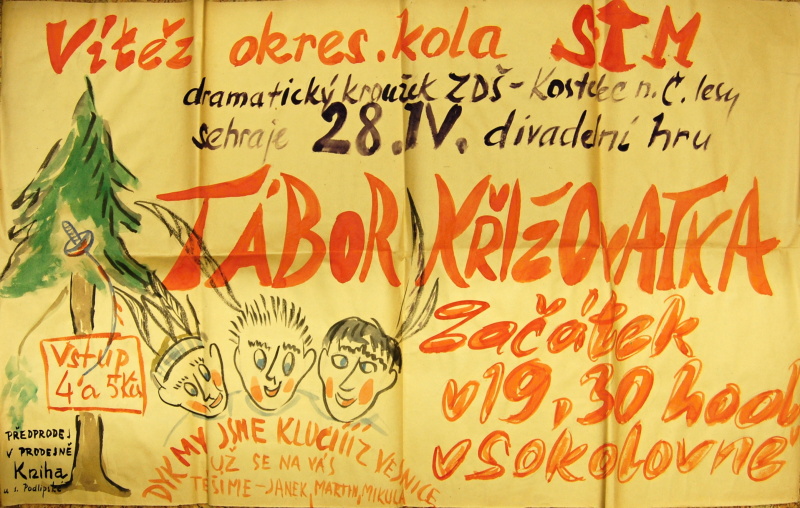 Vítěz okres. kola STM
dramatický kroužek ZDŠ - Kostelec n. Č. lesy
sehraje 28.IV. divadelní hru
TÁBOR KŘIŽOVATKA
Začátek
v 19,30 hod.
v Sokolovně
Vstup
4 a 5 Kčs
PŘEDPRODEJ
V PRODEJNĚ
Kniha
u s. Podlipské
DYK MY JSME KLUCIÍÍ Z VESNICE
UŽ SE NA VÁS
TĚŠIME - JANEK, MARTIN, MIKULA